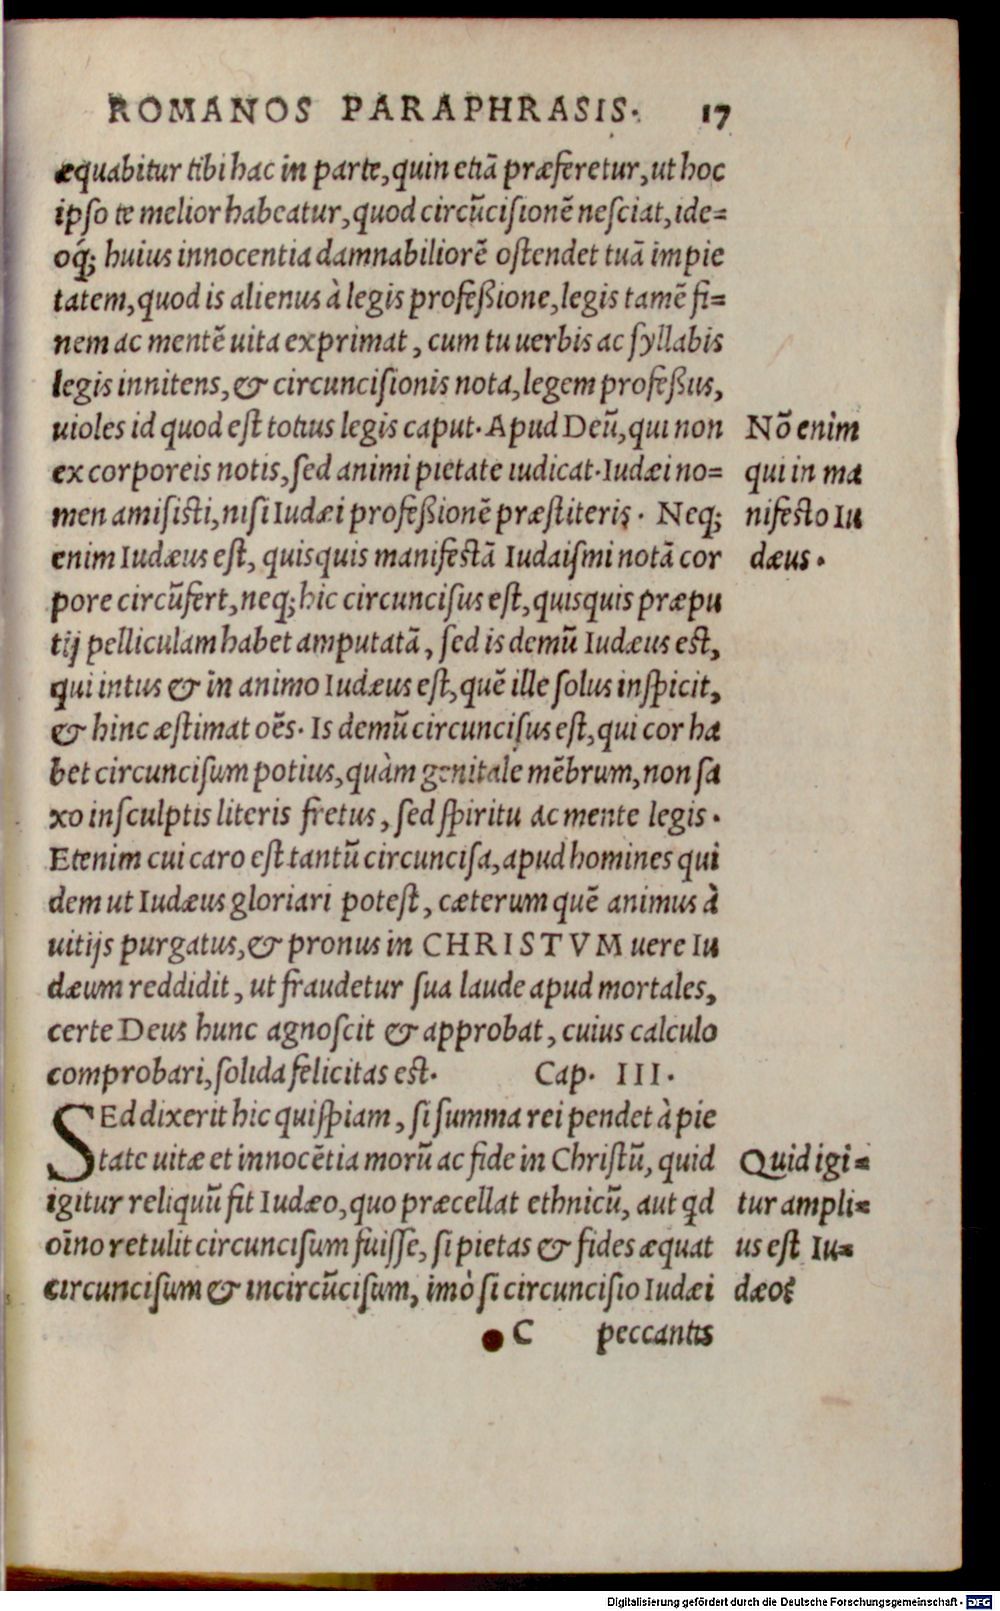 ROMANOS PARAPHRASIS. 17
æquabitur tibi hac in parte, quin etiā præferetur, ut hoc
ipso te melior habeatur, quod circūcisionē nesciat, ide=
oq́; huius innocentia damnabiliorē ostendet tuā impie
tatem, quod is alienus à legis profeßione, legis tamē fi=
nem ac mentē uita exprimat, cum tu uerbis ac syllabis
legis innitens, & circuncisionis nota, legem profeßus,
uioles id quod est totius legis caput. Apud Deū, qui non
ex corporeis notis, sed animi pietate iudicat. Iudæi no=
men amisisti, nisi Iudæi profeßionē præstiteris. Neq;
enim Iudæus est, quisquis manifestā Iudaismi notā cor
pore circūfert, neq; hic circuncisus est, quisquis præpu
tij pelliculam habet amputatā, sed is demū Iudæus est,
qui intus & in animo Iudæus est, quē ille solus inspicit,
& hinc æstimat oēs. Is demū circuncisus est, qui cor ha
bet circuncisum potius, quàm genitale mēbrum, non sa
xo insculptis literis fretus, sed spiritu ac mente legis.
Etenim cui caro est tantū circuncisa, apud homines qui
dem ut Iudæus gloriari potest, cæterum quē animus à
uitijs purgatus, & pronus in CHRISTVM uere Iu
dæum reddidit, ut fraudetur sua laude apud mortales,
certe Deus hunc agnoscit & approbat, cuius calculo
comprobari, solida felicitas est. Cap. III.
SEd dixerit hic quispiam, si summa rei pendet à pie
tate uitæ et innocētia morū ac fide in Christū, quid
igitur reliquū fit Iudæo, quo præcellat ethnicū, aut qd
oīno retulit circuncisum fuisse, si pietas & fides æquat
circuncisum & incircūcisum, imò si circuncisio Iudæi
C peccantis
Nō enim
qui in ma
nifesto Iu
dæus.
Quid igi=
tur ampli=
us est Iu=
dæo?
Digitalisierung gefördert durch die Deutsche Forschungsgemeinschaft - DFG